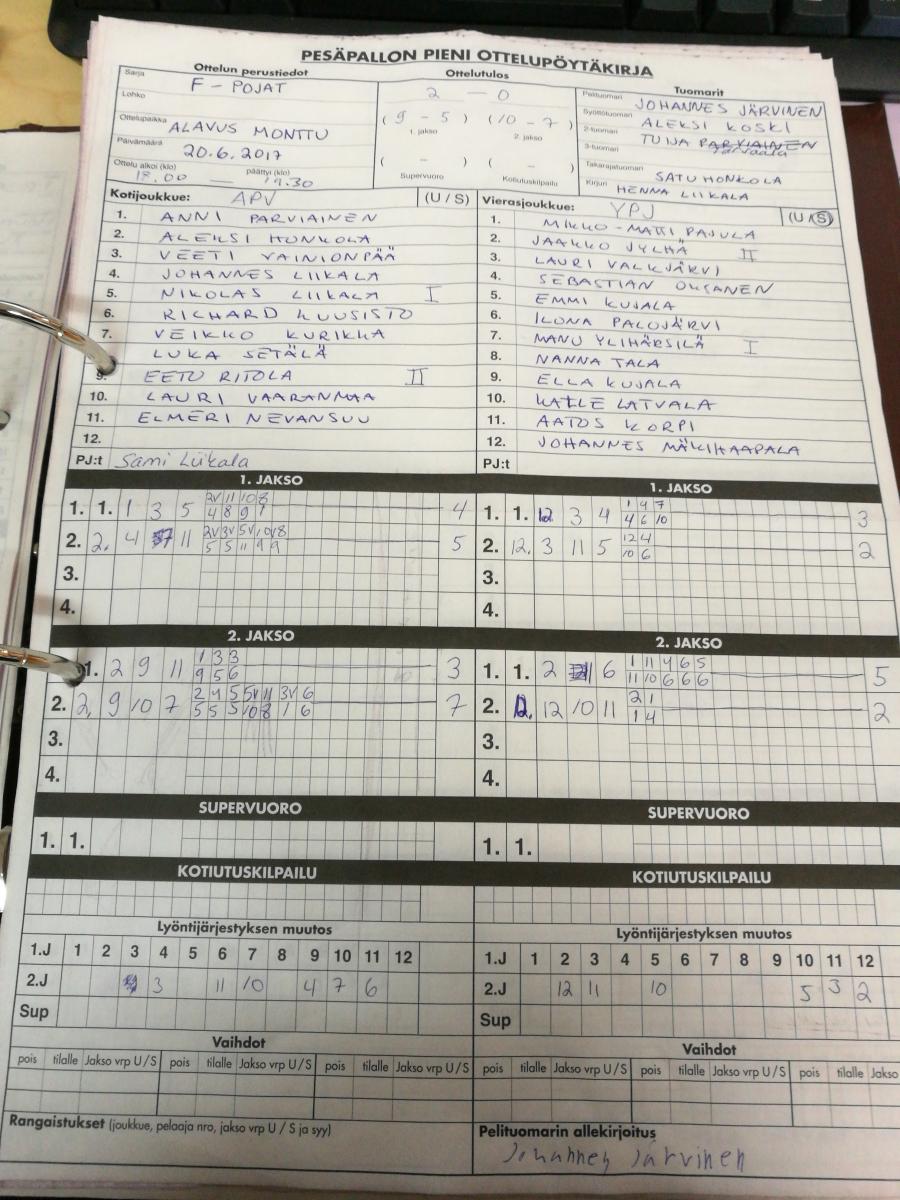 PESÄPALLON PIENI OTTELUPÖYTÄKIRJA
Ottelun perustiedot
Sarja F - POJAT
Lohko
Ottelupaikka ALAVUS MONTTU
Päivämäärä 20.6.2017
Ottelu alkoi (klo) päättyi (klo)
18.00 — 19.30
Ottelutulos
2 — 0
(9 - 5) (10 - 7)
1. jakso 2. jakso
( - ) ( - )
Supervuoro Kotiutuskilpailu
Tuomarit
Pelituomari JOHANNES JÄRVINEN
Syöttötuomari ALEKSI KOSKI
2-tuomari TUIJA PARVIAINEN
3-tuomari
Takarajatuomari SATU HONKOLA
Kirjuri HENNA LIIKALA
Kotijoukkue: APV (U / S)
1. ANNI PARVIAINEN
2. ALEKSI HONKOLA
3. VEETI VAINIONPÄÄ
4. JOHANNES LIIKALA
5. NIKOLAS LIIKALA I
6. RICHARD KUUSISTO
7. VEIKKO KURIKKA
LUKA SETÄLÄ
9. EETU RITOLA II
10. LAURI VAARANMAA
11. ELMERI NEVANSUU
12.
PJ:t Sami Liikala
Vierasjoukkue: YPJ (U / S)
1. MIKKO-MATTI PAJULA
2. JAAKKO JYLHÄ II
3. LAURI VALKJÄRVI
4. SEBASTIAN OKSANEN
5. EMMI KUJALA
6. ILONA PALOJÄRVI
7. MANU YLIHÄRSILÄ I
8. NANNA TALA
9. ELLA KUJALA
10. KALLE LATVALA
11. AATOS KORPI
12. JOHANNES MÄKIHAAPALA
PJ:t
1. JAKSO
1. 1. 1 3 5 2V 11 10 8 4
4 8 9 7
2. 2. 4 11 2V 3V 5V 10V 8 5
5 5 11 9 9
3.
4.
1. JAKSO
1. 1. 12 3 4 1 4 7 3
4 6 10
2. 12. 3 11 5 12 4 2
10 6
3.
4.
2. JAKSO
1. 2 9 11 1 3 3 3
9 5 6
2. 2. 9 10 7 2 4 5 5V 11 3V 6 7
5 5 5 10 8 1 6
3.
4.
2. JAKSO
1. 1. 2 6 1 11 4 6 5 5
11 10 6 6 6
2. 12. 12 10 11 2 1 2
1 4
3.
4.
SUPERVUORO
1. 1.
SUPERVUORO
1. 1.
KOTIUTUSKILPAILU
KOTIUTUSKILPAILU
Lyöntijärjestyksen muutos
1.J 1 2 3 4 5 6 7 8 9 10 11 12
2.J 3 11 10 4 7 6
Sup
Lyöntijärjestyksen muutos
1.J 1 2 3 4 5 6 7 8 9 10 11 12
2.J 12 11 10 5 3 2
Sup
Vaihdot
pois tilalle Jakso vrp U / S pois tilalle Jakso vrp U / S pois tilalle Jakso vrp U / S
Vaihdot
pois tilalle Jakso vrp U / S pois tilalle Jakso vrp U / S pois tilalle Jakso
Rangaistukset (joukkue, pelaaja nro, jakso vrp U / S ja syy)
Pelituomarin allekirjoitus
Johannes Järvinen